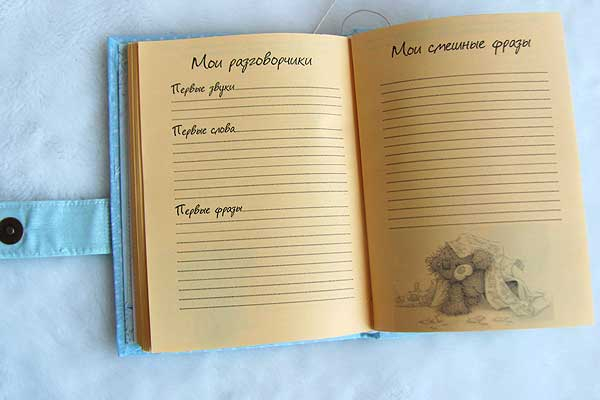 Мои разговорчики
Первые звуки
Первые слова
Первые фразы
Мои смешные фразы